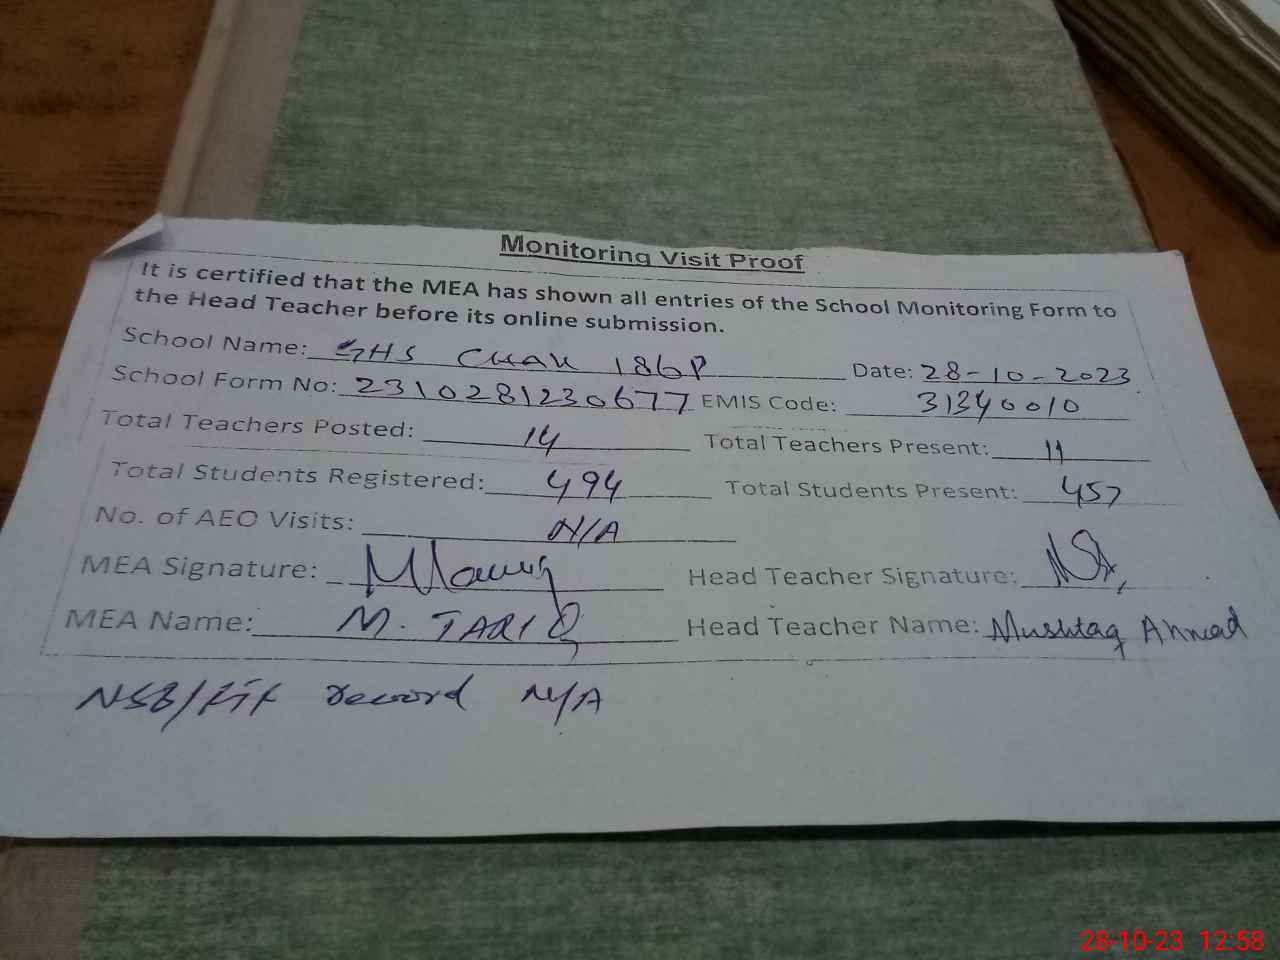 Monitoring Visit Proof
It is certified that the MEA has shown all entries of the School Monitoring Form to
the Head Teacher before its online submission.
School Name: GHS CHAK 186P Date: 28-10-2023
School Form No: 2310281230677 EMIS Code: 31340010
Total Teachers Posted: 14 Total Teachers Present: 11
Total Students Registered: 494 Total Students Present: 457
No. of AEO Visits: N/A
MEA Signature: Head Teacher Signature:
MEA Name: M. TARIQ Head Teacher Name: Mushtaq Ahmad
NSB/FTF record N/A
28-10-23 12:58